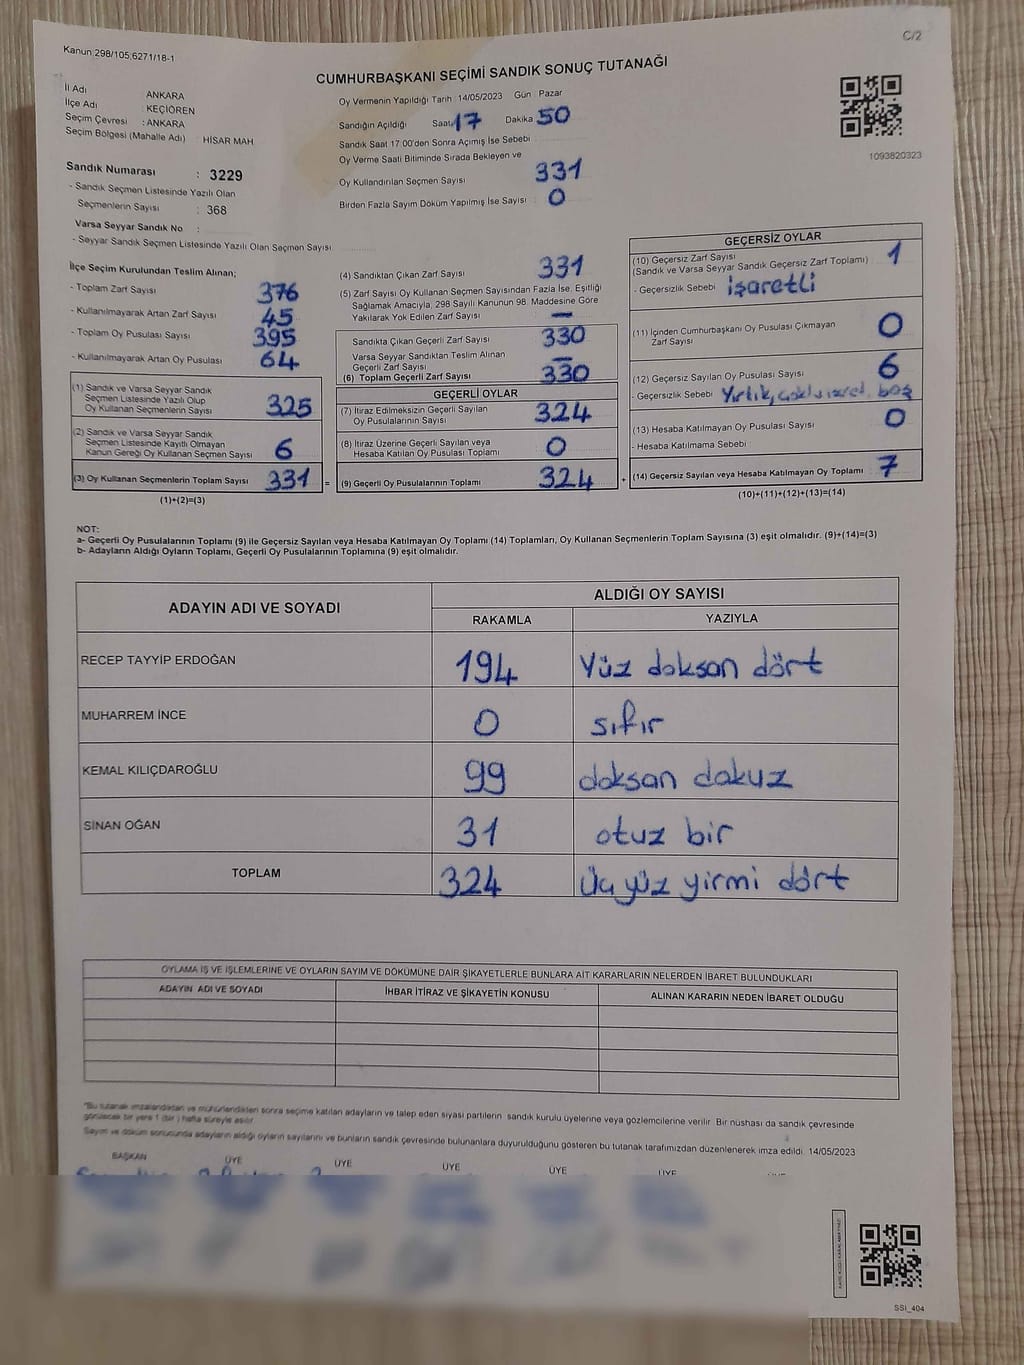 Kanun 298/105 6271/18-1
C/2
CUMHURBAŞKANI SEÇİMİ SANDIK SONUÇ TUTANAĞI
İl Adı : ANKARA
İlçe Adı : KEÇİÖREN
Seçim Çevresi : ANKARA
Seçim Bölgesi (Mahalle Adı) HİSAR MAH
Sandık Numarası : 3229
- Sandık Seçmen Listesinde Yazılı Olan
Seçmenlerin Sayısı : 368
Varsa Seyyar Sandık No :
- Seyyar Sandık Seçmen Listesinde Yazılı Olan Seçmen Sayısı
Oy Vermenin Yapıldığı Tarih 14/05/2023 Gün Pazar
Sandığın Açıldığı Saat 17 Dakika 50
Sandık Saat 17.00'den Sonra Açımış İse Sebebi
Oy Verme Saati Bitiminde Sırada Bekleyen ve
Oy Kullandırılan Seçmen Sayısı 331
Birden Fazla Sayım Döküm Yapılmış İse Sayısı 0
1093820323
İlçe Seçim Kurulundan Teslim Alınan;
- Toplam Zarf Sayısı 376
- Kullanılmayarak Artan Zarf Sayısı 45
- Toplam Oy Pusulası Sayısı 395
- Kullanılmayarak Artan Oy Pusulası 64
(1) Sandık ve Varsa Seyyar Sandık
Seçmen Listesinde Yazılı Olup
Oy Kullanan Seçmenlerin Sayısı 325
(2) Sandık ve Varsa Seyyar Sandık
Seçmen Listesinde Kayıtlı Olmayan
Kanun Gereği Oy Kullanan Seçmen Sayısı 6
(3) Oy Kullanan Seçmenlerin Toplam Sayısı 331 =
(1)+(2)=(3)
(4) Sandıktan Çıkan Zarf Sayısı 331
(5) Zarf Sayısı Oy Kullanan Seçmen Sayısından Fazla İse, Eşitliği
Sağlamak Amacıyla, 298 Sayılı Kanunun 98. Maddesine Göre
Yakılarak Yok Edilen Zarf Sayısı —
Sandıkta Çıkan Geçerli Zarf Sayısı 330
Varsa Seyyar Sandıktan Teslim Alınan
Geçerli Zarf Sayısı —
(6) Toplam Geçerli Zarf Sayısı 330
GEÇERLİ OYLAR
(7) İtiraz Edilmeksizin Geçerli Sayılan
Oy Pusulalarının Sayısı 324
(8) İtiraz Üzerine Geçerli Sayılan veya
Hesaba Katılan Oy Pusulası Toplamı 0
(9) Geçerli Oy Pusulalarının Toplamı 324 +
GEÇERSİZ OYLAR
(10) Geçersiz Zarf Sayısı
(Sandık ve Varsa Seyyar Sandık Geçersiz Zarf Toplamı) 1
- Geçersizlik Sebebi işaretli
(11) İçinden Cumhurbaşkanı Oy Pusulası Çıkmayan
Zarf Sayısı 0
(12) Geçersiz Sayılan Oy Pusulası Sayısı 6
- Geçersizlik Sebebi Yırtık, boş
(13) Hesaba Katılmayan Oy Pusulası Sayısı 0
- Hesaba Katılmama Sebebi
(14) Geçersiz Sayılan veya Hesaba Katılmayan Oy Toplamı 7
(10)+(11)+(12)+(13)=(14)
NOT:
a- Geçerli Oy Pusulalarının Toplamı (9) ile Geçersiz Sayılan veya Hesaba Katılmayan Oy Toplamı (14) Toplamları, Oy Kullanan Seçmenlerin Toplam Sayısına (3) eşit olmalıdır. (9)+(14)=(3)
b- Adayların Aldığı Oyların Toplamı, Geçerli Oy Pusulalarının Toplamına (9) eşit olmalıdır.
ADAYIN ADI VE SOYADI ALDIĞI OY SAYISI
RAKAMLA YAZIYLA
RECEP TAYYİP ERDOĞAN 194 Yüz doksan dört
MUHARREM İNCE 0 sıfır
KEMAL KILIÇDAROĞLU 99 doksan dokuz
SİNAN OĞAN 31 otuz bir
TOPLAM 324 üç yüz yirmi dört
OYLAMA İŞ VE İŞLEMLERİNE VE OYLARIN SAYIM VE DÖKÜMÜNE DAİR ŞİKAYETLERLE BUNLARA AİT KARARLARIN NELERDEN İBARET BULUNDUKLARI
ADAYIN ADI VE SOYADI İHBAR İTİRAZ VE ŞİKAYETİN KONUSU ALINAN KARARIN NEDEN İBARET OLDUĞU
"Bu tutanak imzalandıktan ve mühürlendikten sonra seçime katılan adayların ve talep eden siyasi partilerin sandık kurulu üyelerine veya gözlemcilerine verilir. Bir nüshası da sandık çevresinde
görülecek bir yere 1 (bir) hafta süreyle asılır.
Sayım ve döküm sonucunda adayların aldığı oyların sayılarını ve bunların sandık çevresinde bulunanlara duyurulduğunu gösteren bu tutanak tarafımızdan düzenlenerek imza edildi. 14/05/2023
BAŞKAN ÜYE ÜYE ÜYE ÜYE ÜYE
SSI_404